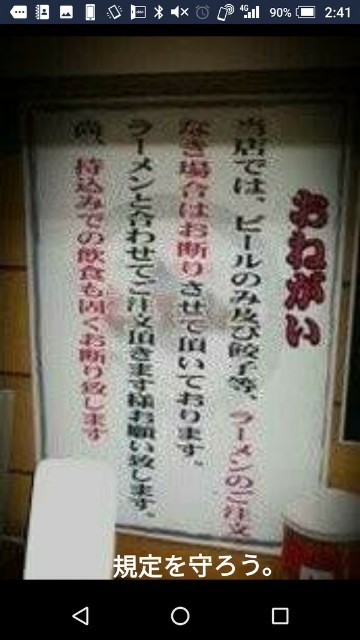 90% 2:41
4G
おねがい
当店では、ビールのみ及び餃子等、ラーメンのご注文
なき場合はお断りさせて頂いております。
ラーメンと合わせてご注文頂きます様お願い致します。
尚、持込みでの飲食も固くお断り致します
規定を守ろう。